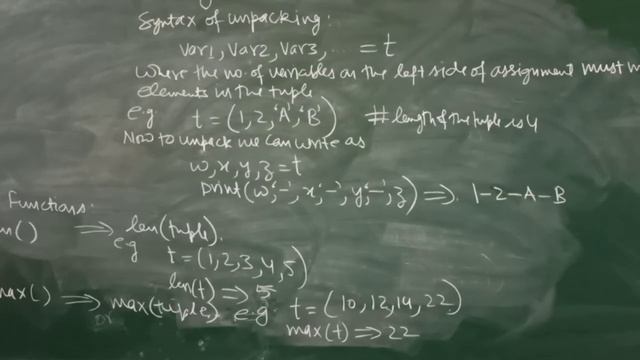 Syntax of unpacking:
var1, var2, var3, ... = t
where the no. of variables on the left side of assignment must
elements in the tuple
e.g t = (1, 2, 'A', 'B') # length of the tuple is 4
Now to unpack we can write as
w, x, y, z = t
print(w,'-', x,'-', y,'-', z) ⇒ 1-2-A-B
Functions:
⇒ len(tuple).
e.g t = (1, 2, 3, 4, 5)
len(t) ⇒ 5
⇒ max(tuple) e.g. t = (10, 12, 14, 22)
max(t) ⇒ 22